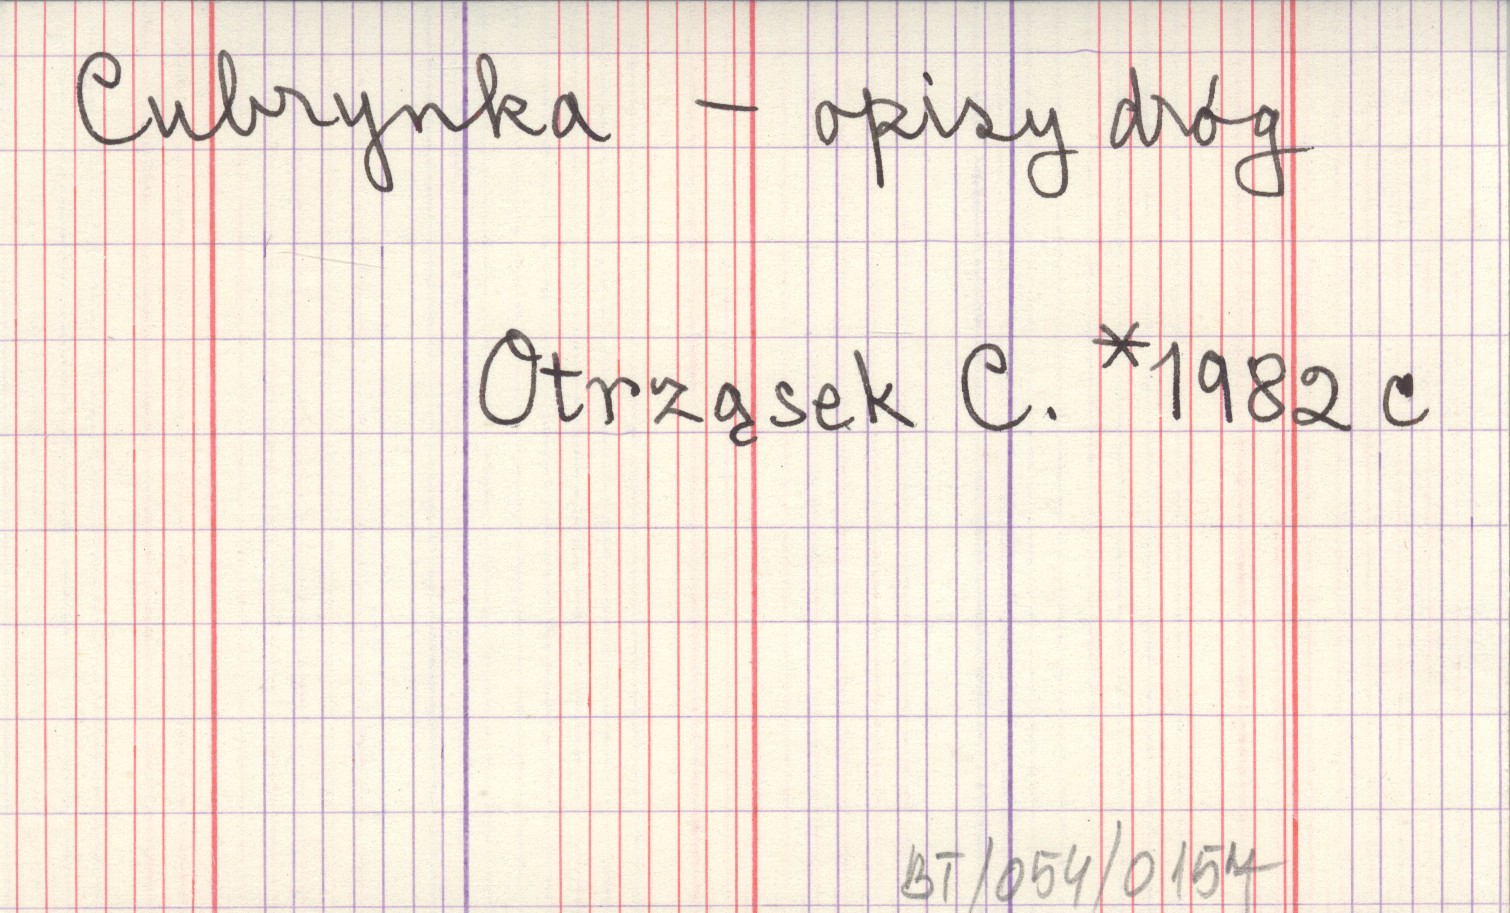 Cubrynka - opisy dróg
Otrząsek C. *1982 c
BT/054/0157